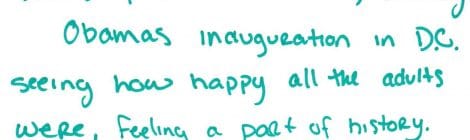 Obamas inauguration in D.C.
seeing how happy all the adults
were, feeling a part of history.